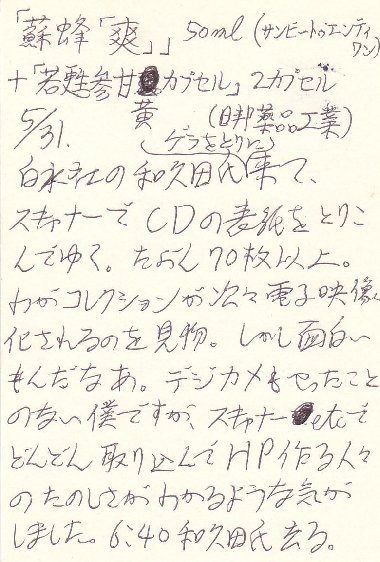 「蘇蜂「爽」」 50ml (サンビートゥエンティワン)
+「若甦参甘黄カプセル」2カプセル
(日邦薬品工業)
5/31.
(ゲラをとりに)
白水社の和久田氏来て、
スキャナーでCDの表紙をとりこ
んでゆく。たぶん70枚以上。
わがコレクションが次々電子映像
化されるのを見物。しかし面白い
もんだなあ。デジカメもやったこと
のない僕ですが、スキャナーetcで
どんどん取り込んでHP作る人々
のたのしさがわかるような気が
しました。6:40和久田氏去る。